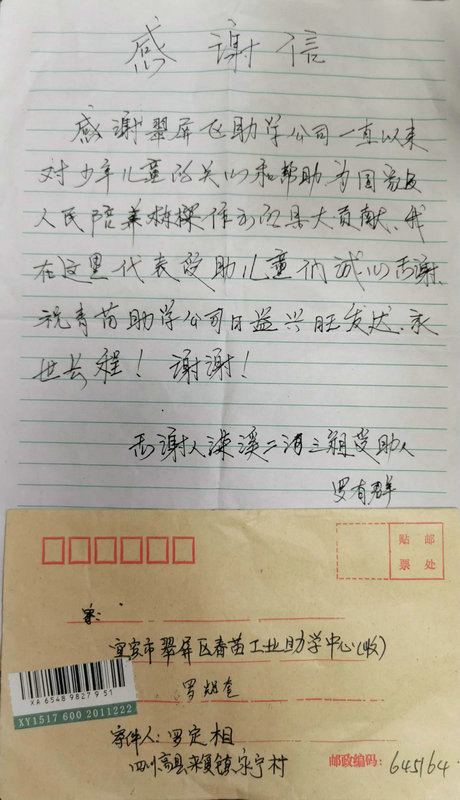 感谢信
感谢翠屏区助学公司一直以来
对少年儿童的关心和帮助为国家及
人民陪养栋樑作出巨大贡献、我
在这里代表受助儿童们诚心感谢、
祝青苗助学公司日益兴旺发达、永
世长程！谢谢！
感谢人溧溪二沟三组受助人
罗有群
贴 邮
票 处
宜宾市翠屏区春苗工业助学中心(收)
XA 6548 9827 9 51
XY1517 600 2011222
寄件人：罗定相
四川高县来复镇永宁村
邮政编码：645164